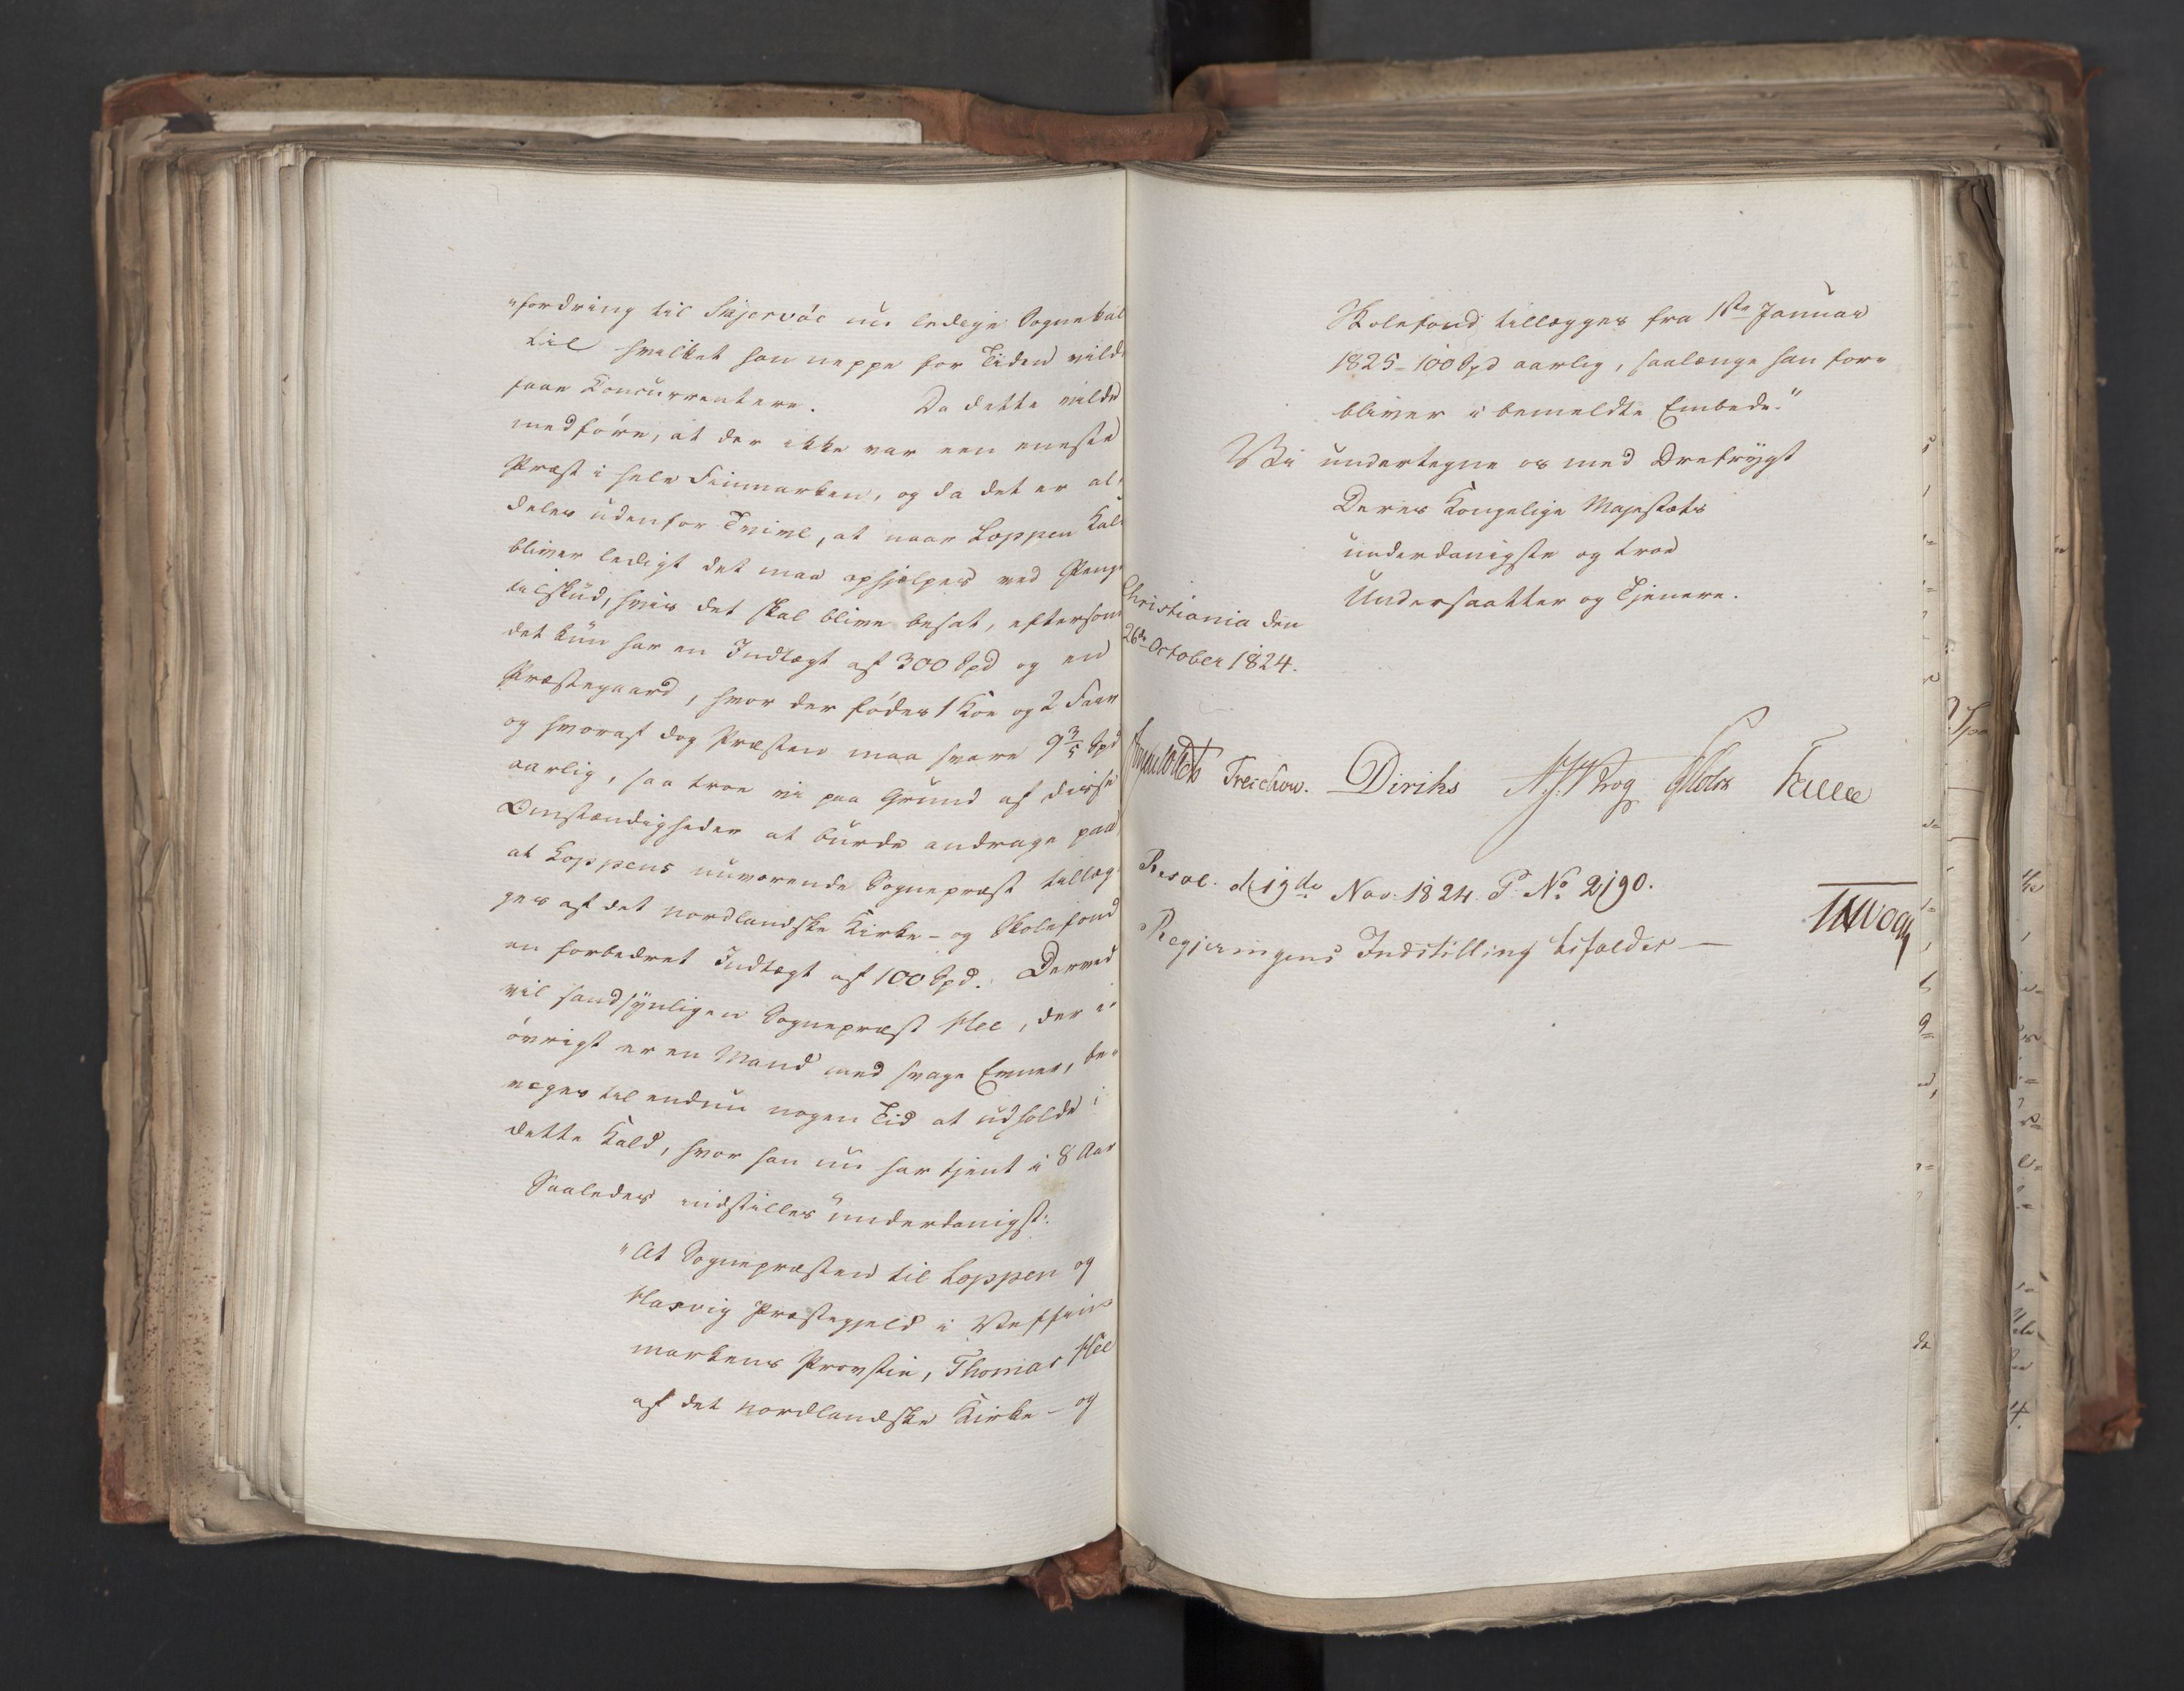 "fordring til Skjervöe nu ledige Sognekal
til hvilket han neppe for Tiden vilde
faae Concurrentere. Da dette vilde
medföre, at der ikke var een eneste
Præst i hele Finmarken, og da det er al,
deles udenfor Tvivl, at naar Loppen Kald
bliver ledigt det maa ophjælpes ved Penge
tilskud, hvis det skal blive besat, eftersom
det kun har en Indtægt af 300 Spd og en
Præstegaard, hvor der födes 1 Koe og 2 Faar
og hvoraf dog Præsten maa svare 9 3/5 Spd
aarlig, saa troe vi paa Grund af disse
Omstændigheder at burde andrage paa
at Loppens nuværende Sognepræst tillæg,
ges af det nordlandske Kirke- og Skolefond
en forbedret Indtægt af 100 Spd. Derved
vil sandsynligen Sognepræst Hee, der i"
övrigt er en Mand med svage Evner, be"
væges til endnu nogen Tid at udholde i
dette Kald, hvor han nu har tjent i 8 Aar
Saaledes indstilles underdanigst:
"At Sognepræsten til Loppen og
Hasvig Præstegjeld i Vestfin"
markens Provstie, Thomas Hee
af det nordlandske Kirke- og
Skolefond tillægges fra 1ste Januar
1825 - 100 Spd aarlig, saalænge han for"
bliver i bemeldte Embede."
Vi undertegne os med Ærefrygt
Deres Kongelige Majestæts
underdanigste og troe
Undersaatter og Tjenere.
Christiania den
26de October 1824.
Treschow. Diriks Krog
Resol. d. 19de Nov. 1824. P. No. 2190.
Regjeringens Indstilling bifaldes —